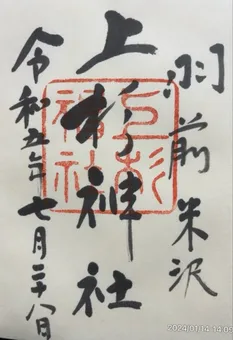 羽前米沢
上杉神社
令和五年七月二十八日
上杉神社
2024/01/14 14:09